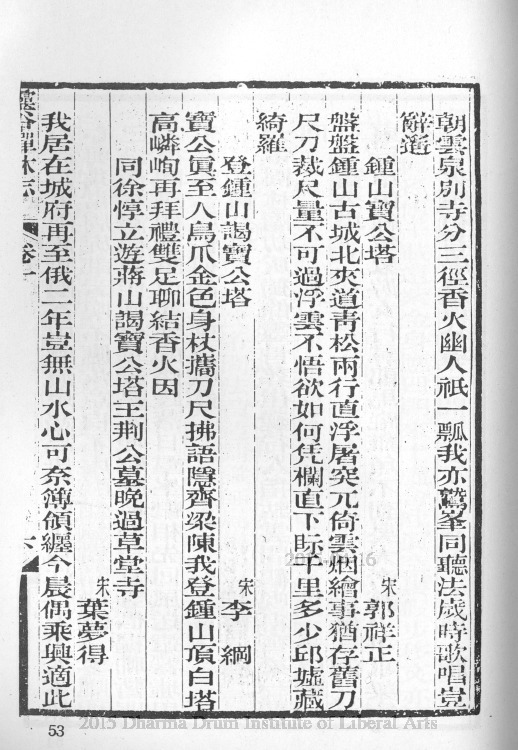 朝雲泉別寺分三徑香火幽人祇一瓢我亦鷲峯同聽法歲時歌唱豈
辭遙
鍾山寶公塔
宋 郭祥正
盤盤鍾山古城北夾道青松兩行直浮屠突兀倚雲烟繪事猶存舊刀
尺刀裁尺量不可過浮雲不悟欲如何凭欄直下眎千里多少邱墟藏
綺羅
登鍾山謁寶公塔
宋 李綱
寶公眞至人鳥爪金色身杖攜刀尺拂語隱齊梁陳我登鍾山頂白塔
高嶙峋再拜禮雙足聊結香火因
同徐惇立遊蔣山謁寶公塔王荆公墓晚過草堂寺
宋 葉夢得
我居在城府再至俄二年豈無山水心可奈簿領纏今晨偶乘興適此
靈谷禪林志 卷十 六
53
2015 Dharma Drum Institute of Liberal Arts